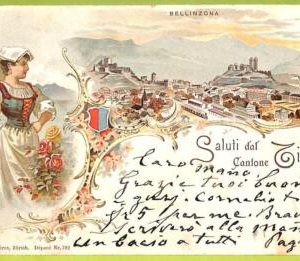 BELLINZONA
Saluti dal
Cantone Ti
Caro mano
Grazie tuoi buon
Cornelio
25 per me. Brac
scriverò alla mam
un bacio a tutti.
Zürich. Déposé Nr. 702